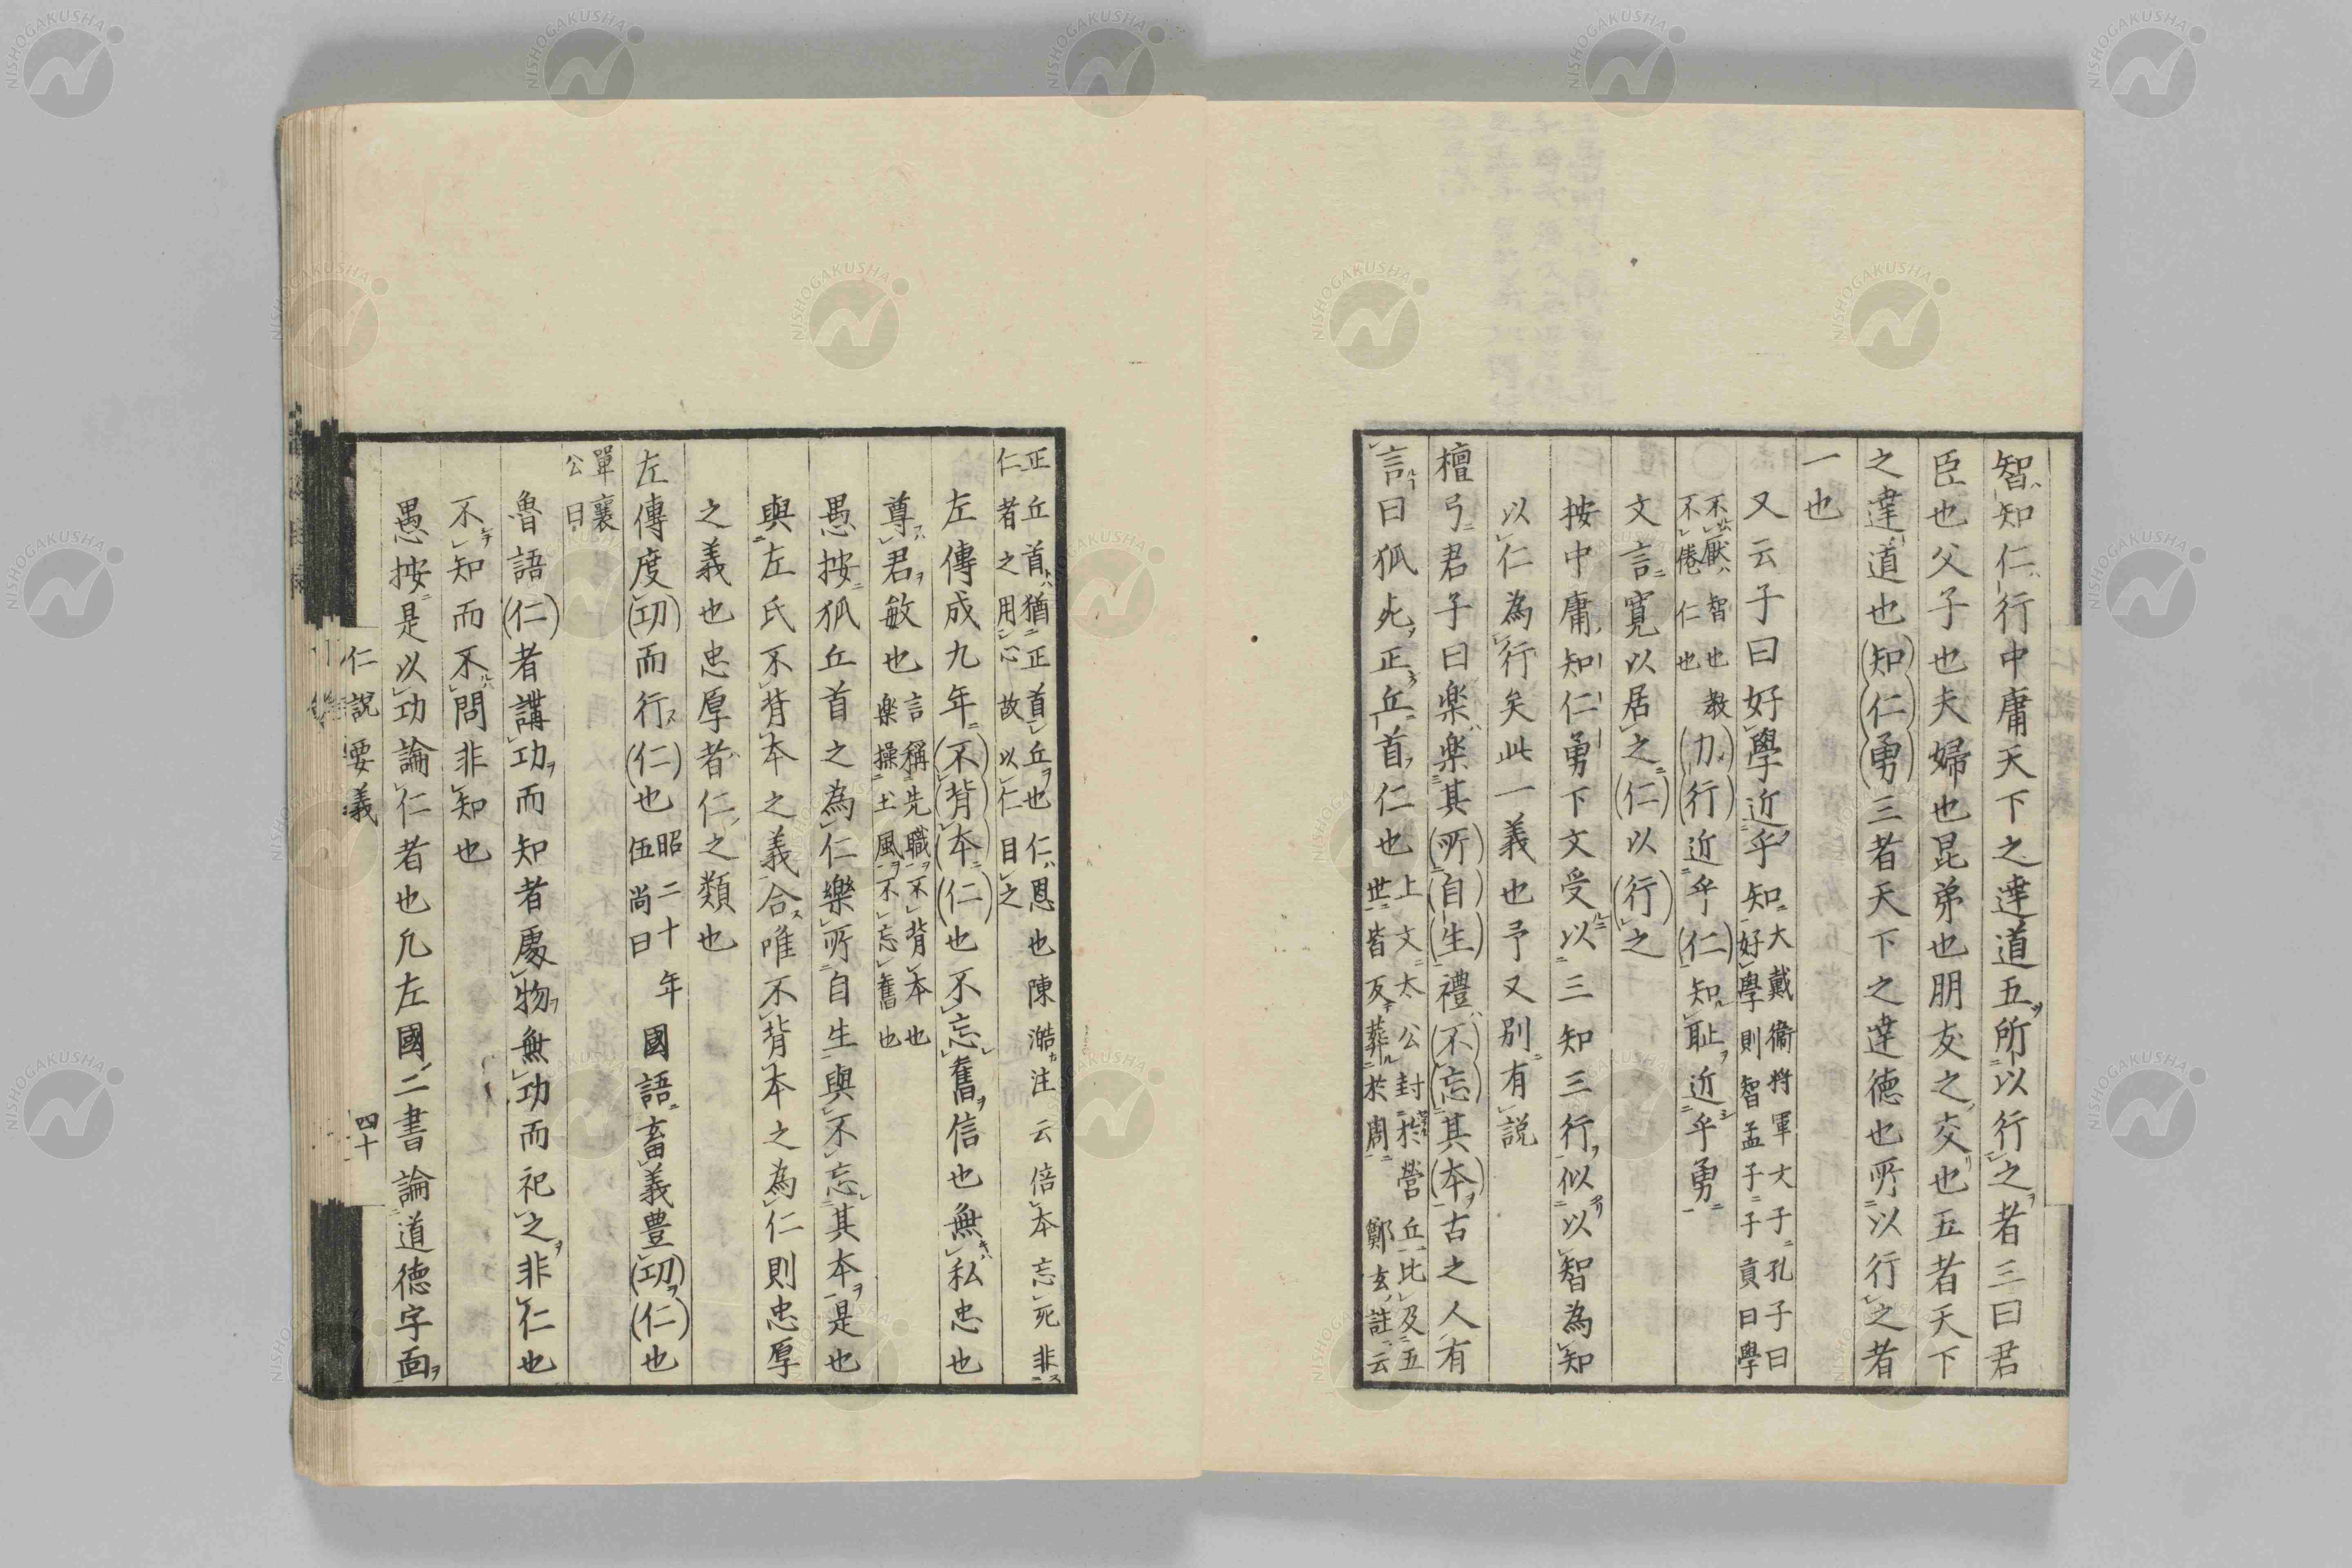 智知仁行中庸天下之達道五所以行之者三曰君
臣也父子也夫婦也昆弟也朋友之交也五者天下
之達道也(知)(仁)(勇)三者天下之達徳也所以行之者
一也
又云子曰好學近乎知大戴衞将軍大子孔子曰
好學則智孟子子貢曰學
不厭智也教
不倦仁也(力)(行)近乎(仁)知耻近乎勇
文言寛以居之(仁)以(行)之
按中庸知仁勇下文受以三知三行似以智為知
以仁為行矣此一義也予又別有説
檀弓君子曰楽楽其(所)(自)(生)禮(不)(忘)其(本)古之人有
言曰狐死正丘首仁也上文太公封於營丘比及五
世皆反葬於周鄭玄註云
正丘首猶正首丘也仁恩也陳澔注云倍本忘死非
仁者之用心故以仁目之
左傳成九年(不)(背)(本)(仁)也不忘舊信也無私忠也
尊君敏也言稱先職不背本也
楽操土風不忘舊也
愚按狐丘首之為仁樂所自生與不忘其本是也
與左氏不背本之義合唯不背本之為仁則忠厚
之義也忠厚者仁之類也
左傳度(功)而行(仁)也昭二十年
伍尚曰國語畜義豊(功)(仁)也
單襄
公曰
魯語(仁)者講功而知者處物無功而祀之非仁也
不知而不問非知也
愚按是以功論仁者也凢左國二書論道徳字面
仁説要義
四十